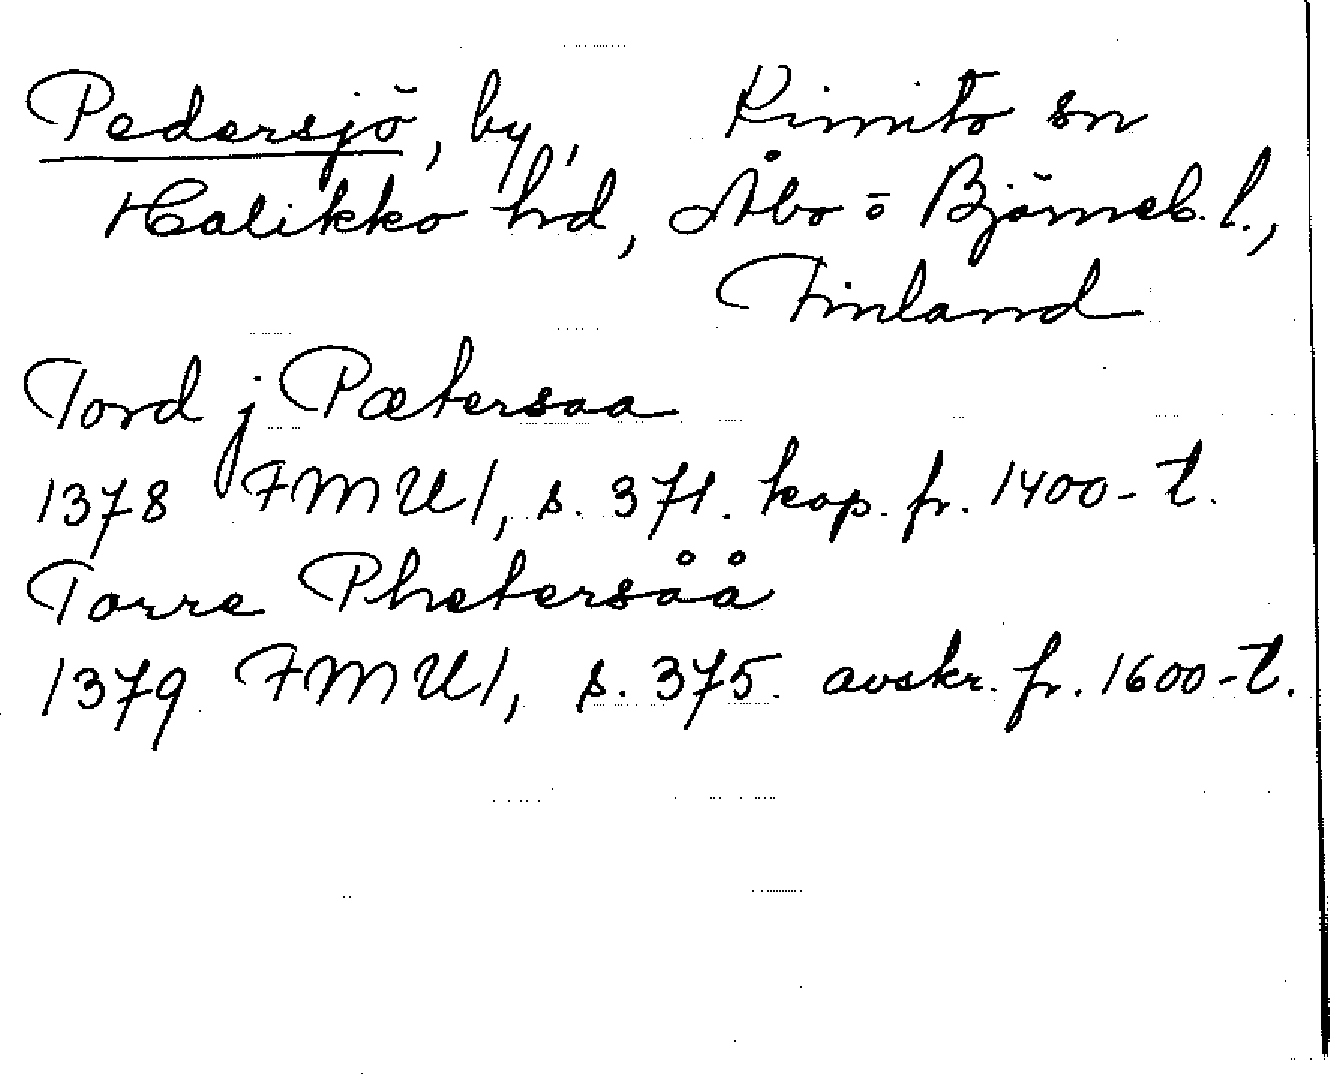 Pedersjö, by, Kimito sn
Halikko hd, Åbo o Björneb. l.,
Finland
Tord j Pætersaa
1378 FMU 1, s. 371. kop. fr. 1400-t.
Torre Phetersåå
1379 FMU 1, s. 375. avskr. fr. 1600-t.